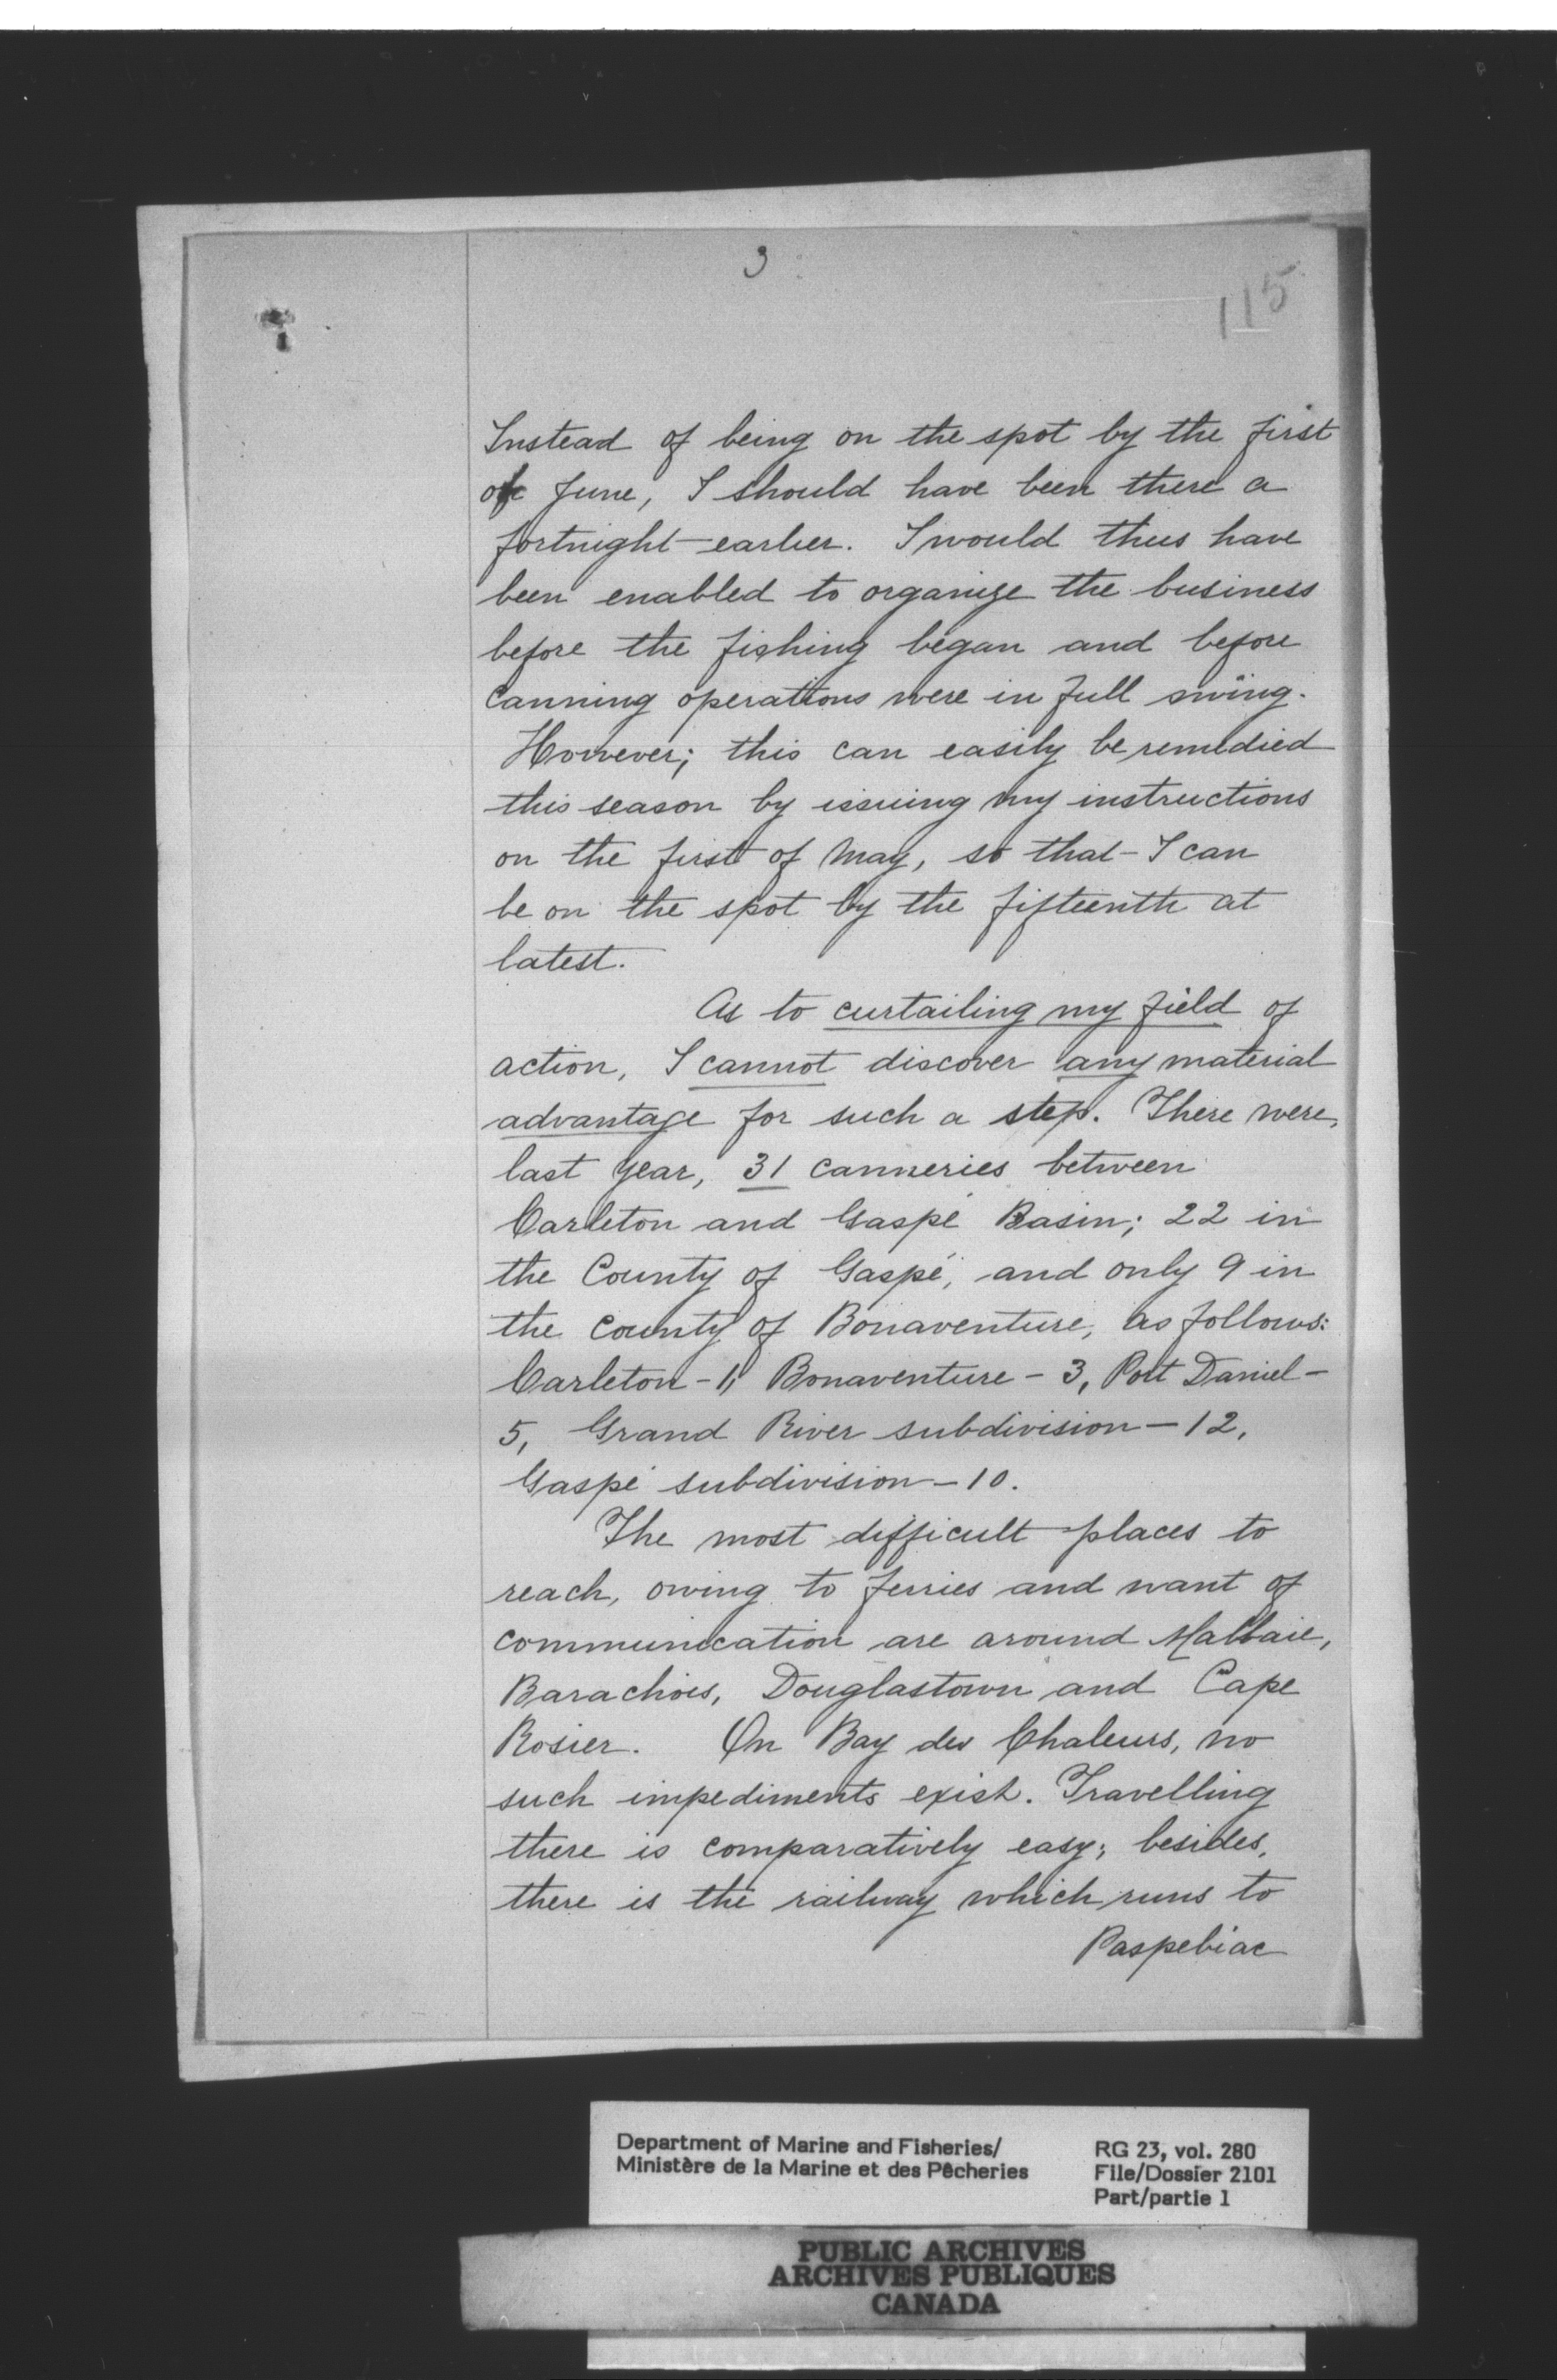 3
115
Instead of being on the spot by the first
of June, I should have been there a
fortnight earlier. I would thus have
been enabled to organize the business
before the fishing began and before
canning operations were in full swing.
However; this can easily be remedied
this season by issuing my instructions
on the first of May, so that I can
be on the spot by the fifteenth at
latest.
As to curtailing my field of
action, I cannot discover any material
advantage for such a step. There were,
last year, 31 canneries between
Carleton and Gaspé Basin; 22 in
the County of Gaspé, and only 9 in
the County of Bonaventure, as follows:
Carleton - 1, Bonaventure - 3, Port Daniel -
5, Grand River subdivision - 12,
Gaspé subdivision - 10.
The most difficult places to
reach, owing to ferries and want of
communication are around Malbaie,
Barachois, Douglastown and Cape
Rosier. On Bay des Chaleurs, no
such impediments exist. Travelling
there is comparatively easy; besides,
there is the railway which runs to
Paspebiac
Department of Marine and Fisheries/
Ministère de la Marine et des Pêcheries
RG 23, vol. 280
File/Dossier 2101
Part/partie 1
PUBLIC ARCHIVES
ARCHIVES PUBLIQUES
CANADA